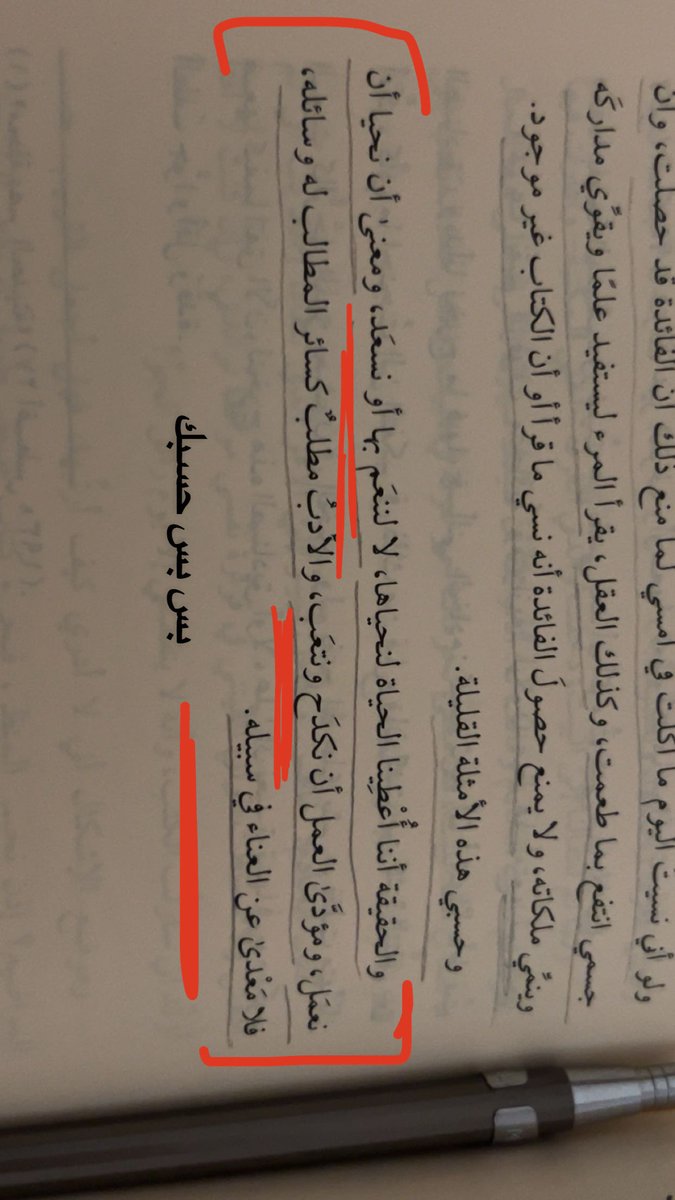 ولو أني نسيت اليوم ما أكلت في أمسي لما منع ذلك أن الفائدة قد حصلت، وأن
جسمي انتفع بما طعمت، وكذلك العقل، يقرأ المرء ليستفيد علمًا ويقوِّي مداركَه
وينمِّي ملكاته، ولا يمنع حصولَ الفائدة أنه نسي ما قرأ أو أن الكتاب غير موجود.
وحسبي هذه الأمثلة القليلة.
والحقيقة أننا أُعْطِينا الحياة لنحياها، لا لننعَم بها أو نسعَد، ومعنىٰ أن نحيا أن
نعمَل، ومؤدَّىٰ العمل أن نكدَح ونتعَب، والأدبُ مطلبٌ كسائر المطالب له وسائله،
فلا مَعْدىٰ عن العناء في سبيله.
بس بس حسبك